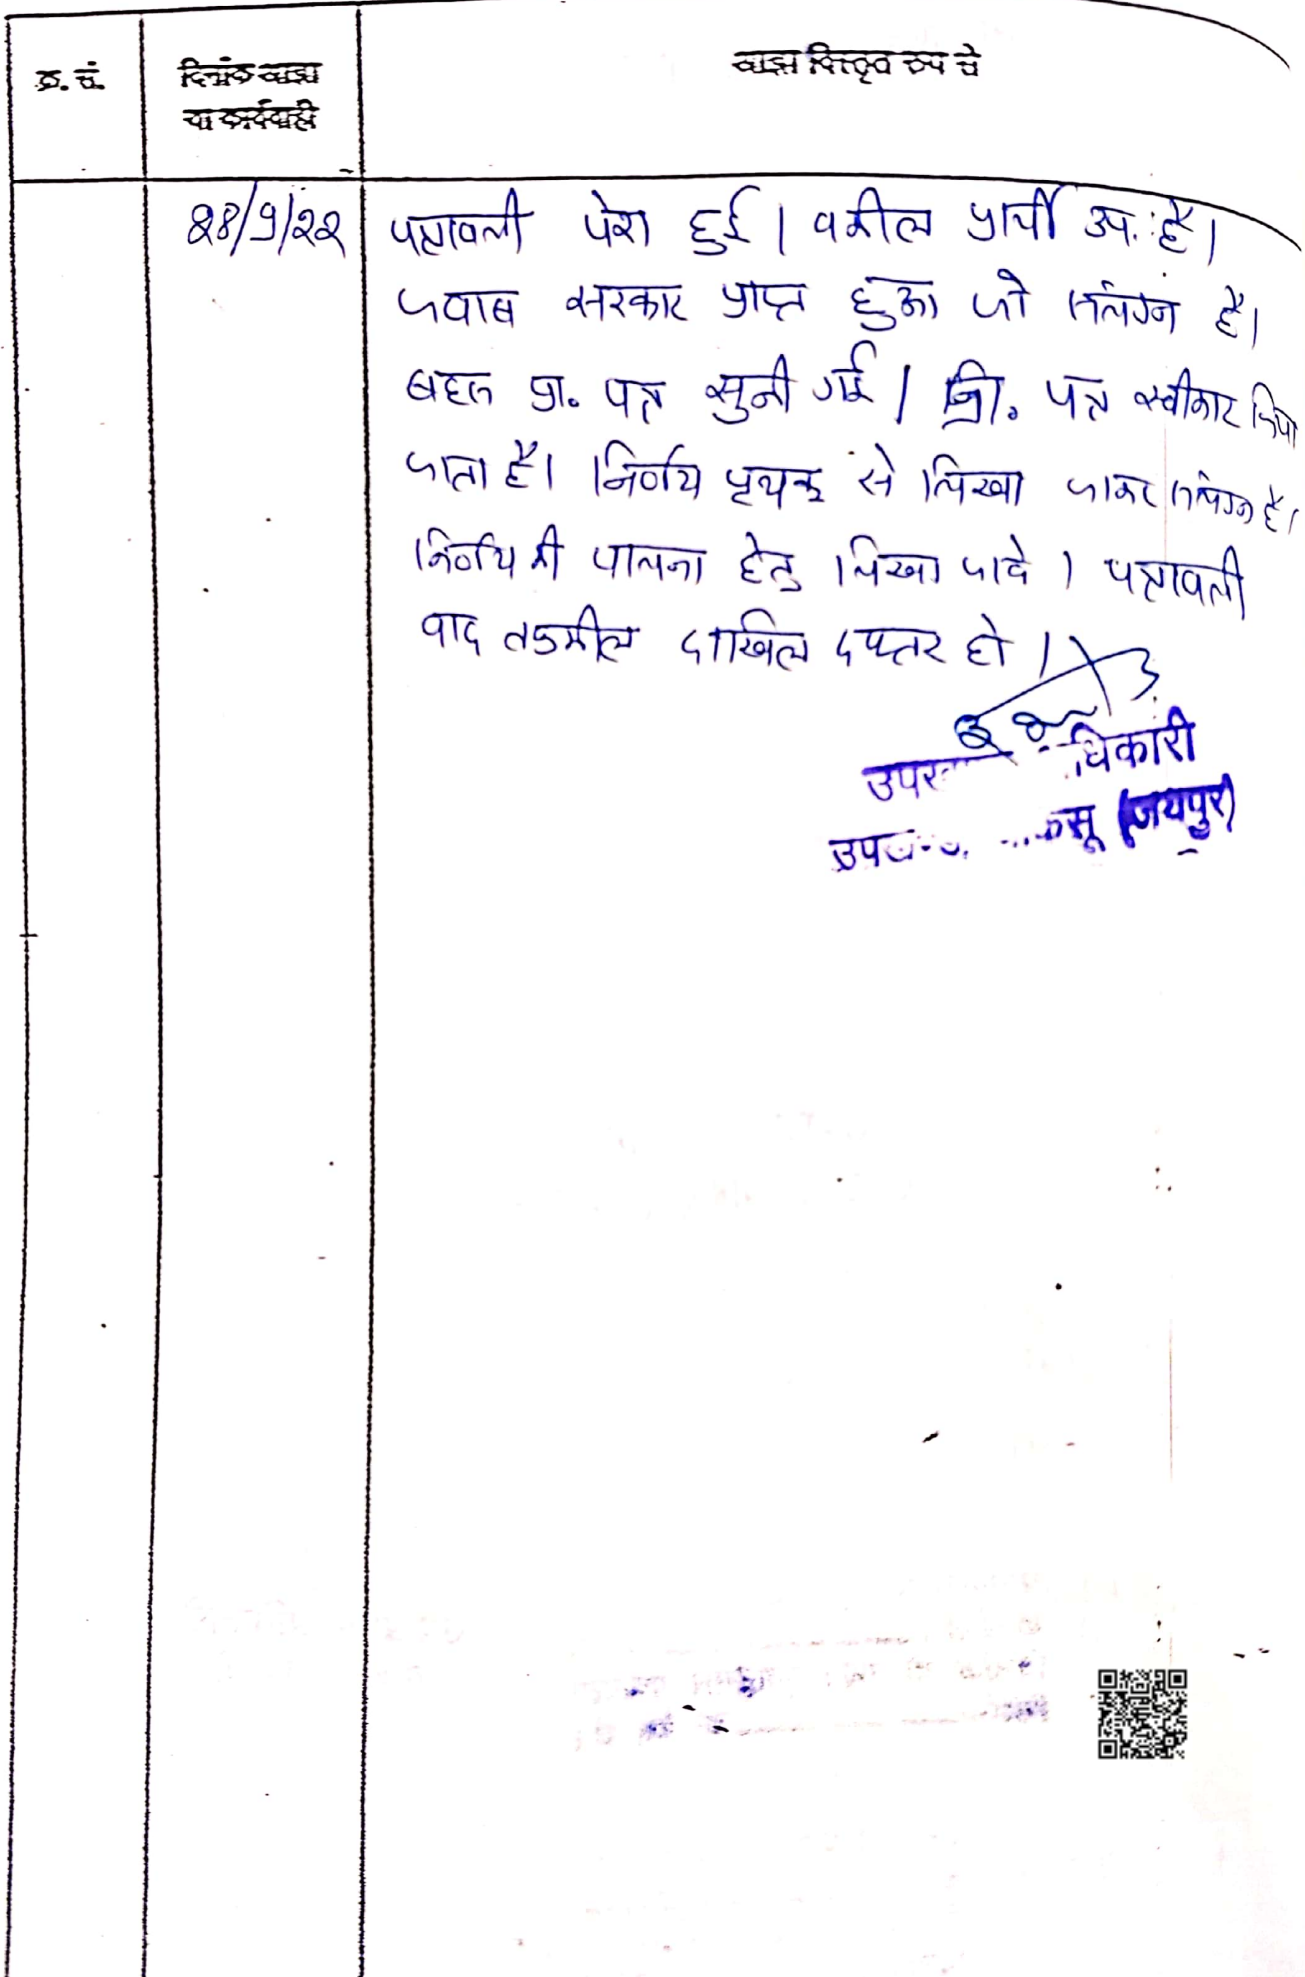 क्र. सं.
दिनांक आज्ञा
या कार्यवाही
आज्ञा विस्तृत रूप से
28/9/22
पत्रावली पेश हुई। वकील प्रार्थी उप. है।
जवाब सरकार प्राप्त हुआ जो संलग्न है।
बहस प्रा. पत्र सुनी गई। प्रा. पत्र स्वीकार किया
जाता है। निर्णय पृथक से लिखा जाकर संलग्न है।
निर्णय की पालना हेतु लिखा जावे। पत्रावली
बाद तकमील दाखिल दफ्तर हो।
धिकारी
(जयपुर)